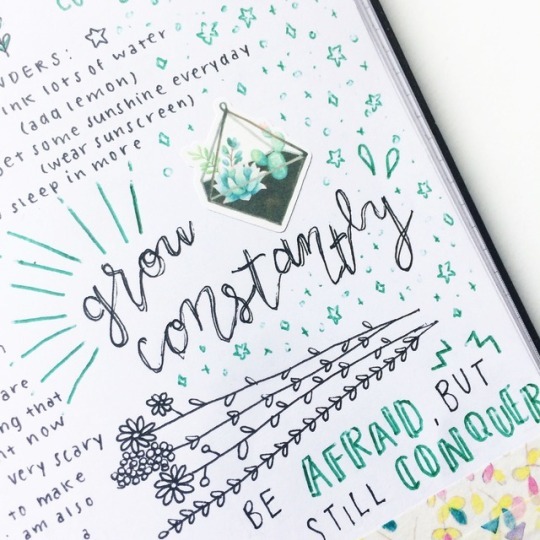 NDERS:
INK lots OF water
(add lemon)
get some sunshine everyday
(wear sunscreen)
sleep in more
grow
constantly
are
ng that
t now
very scary
to make
am also
a
BE AFRAID, BUT
STILL CONQUER